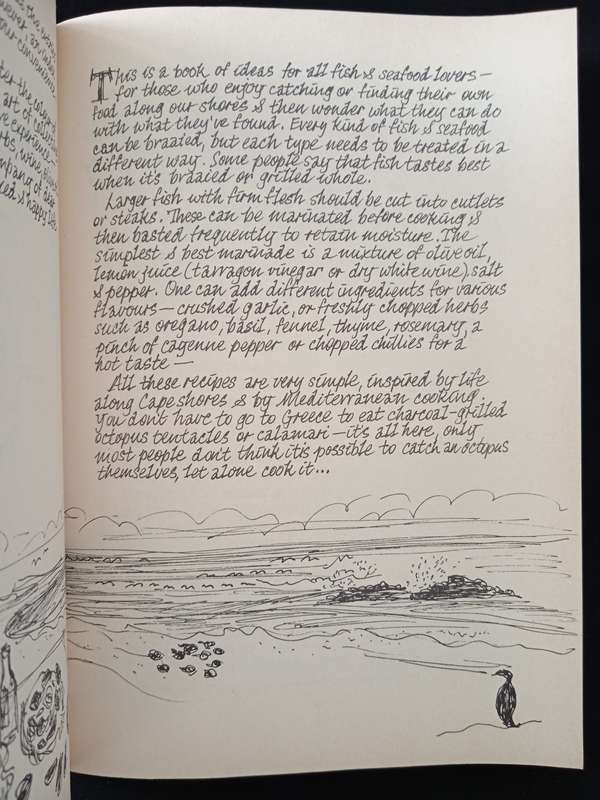 This is a book of ideas for all fish & seafood lovers —
for those who enjoy catching or finding their own
food along our shores & then wonder what they can do
with what they've found. Every kind of fish & seafood
can be braaied, but each type needs to be treated in a
different way. Some people say that fish tastes best
when it's braaied or grilled whole.
Larger fish with firm flesh should be cut into cutlets
or steaks. These can be marinated before cooking &
then basted frequently to retain moisture. The
simplest & best marinade is a mixture of olive oil,
lemon juice (tarragon vinegar or dry white wine), salt
& pepper. One can add different ingredients for various
flavours — crushed garlic, or freshly chopped herbs
such as oregano, basil, fennel, thyme, rosemary, a
pinch of cayenne pepper or chopped chillies for a
hot taste —
All these recipes are very simple, inspired by life
along Cape shores & by Mediterranean cooking.
You don't have to go to Greece to eat charcoal-grilled
octopus tentacles or calamari — it's all here, only
most people don't think it is possible to catch an octopus
themselves, let alone cook it...